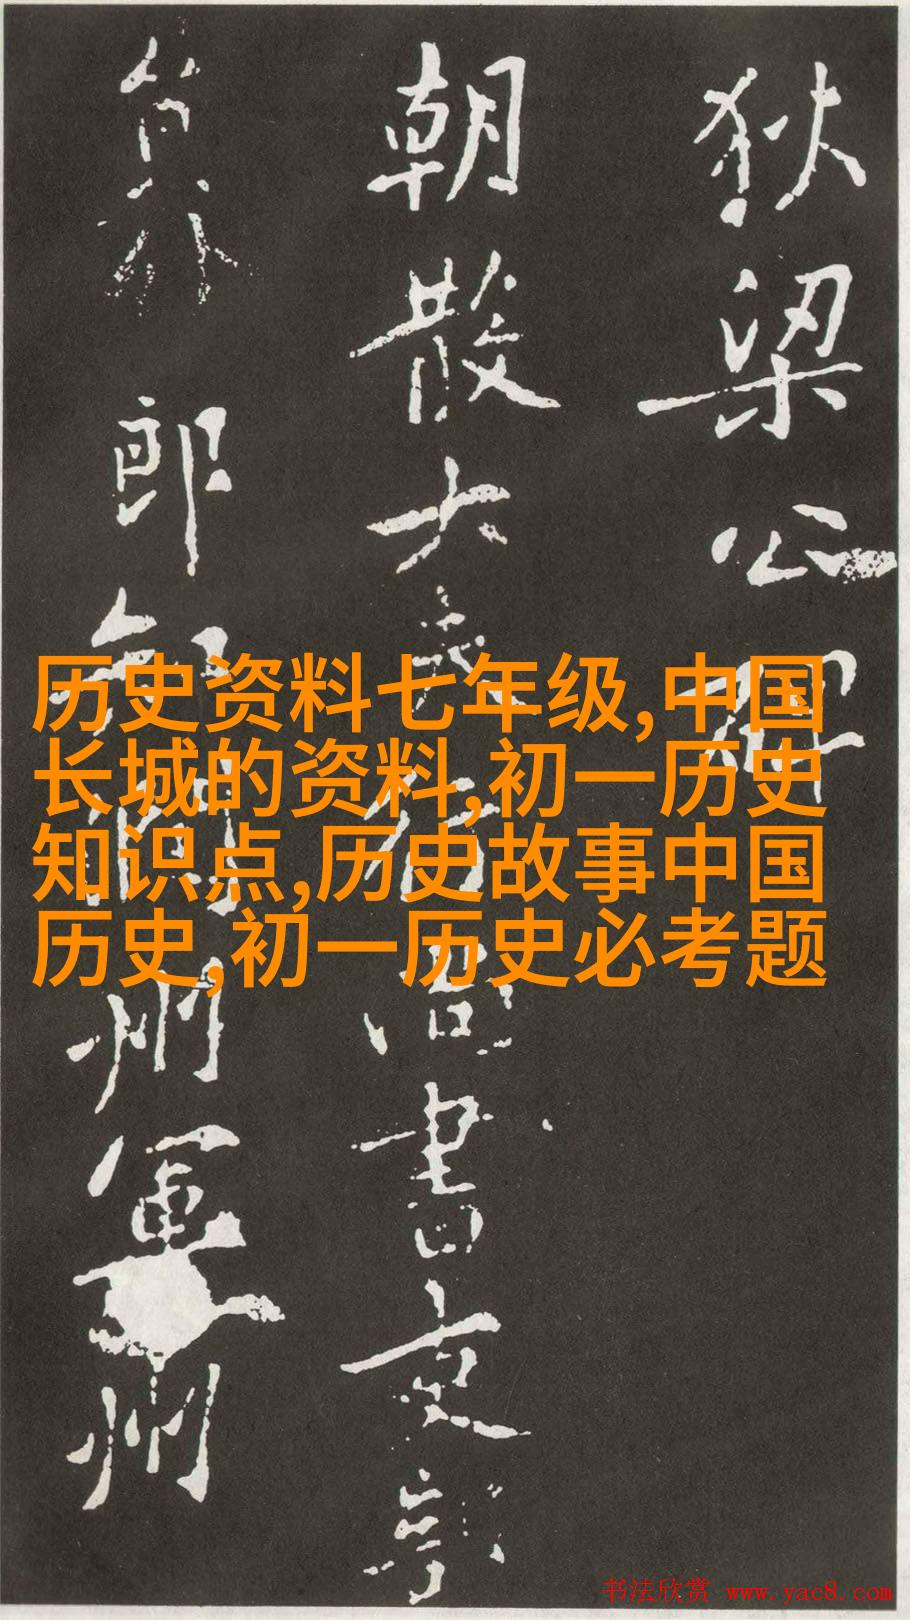 狄梁公碑
朝散大夫行尚書吏部
員外郎知潤州軍州
历史资料七年级,中国
长城的资料,初一历史
知识点,历史故事中国
历史,初一历史必考题
书法欣赏 www.yac8.com